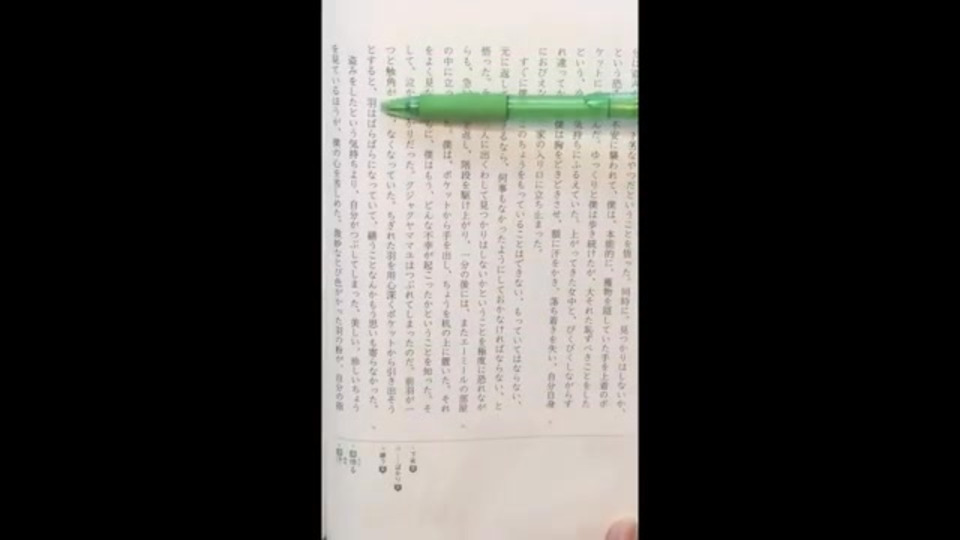 下劣なやつだということを悟った。同時に、見つかりはしないか、
という恐 不安に襲われて、僕は、本能的に、獲物を隠していた手を上着のポ
ケットに んだ。ゆっくりと僕は歩き続けたが、大それた恥ずべきことをした
という、 気持ちにふるえていた。上がってきた女中と、びくびくしながらす
れ違ってか 僕は胸をどきどきさせ、額に汗をかき、落ち着きを失い、自分自身
におびえな 家の入り口に立ち止まった。
すぐに僕 このちょうをもっていることはできない、もっていてはならない、
元に返して るなら、何事もなかったようにしておかなければならない、と
悟った。 人に出くわして見つかりはしないかということを極度に恐れなが
らも、急 返し、階段を駆け上がり、一分の後には、またエーミールの部屋
の中に立っ た。僕は、ポケットから手を出し、ちょうを机の上に置いた。それ
をよく見な に、僕はもう、どんな不幸が起こったかということを知った。そ
して、泣か かりだった。クジャクヤママユはつぶれてしまったのだ。前羽が一
つと触角が なくなっていた。ちぎれた羽を用心深くポケットから引き出そう
とすると、羽はばらばらになっていて、繕うことなんかもう思いも寄らなかった。
盗みをしたという気持ちより、自分がつぶしてしまった、美しい、珍しいちょう
を見ているほうが、僕の心を苦しめた。微妙なとび色がかった羽の粉が、自分の指